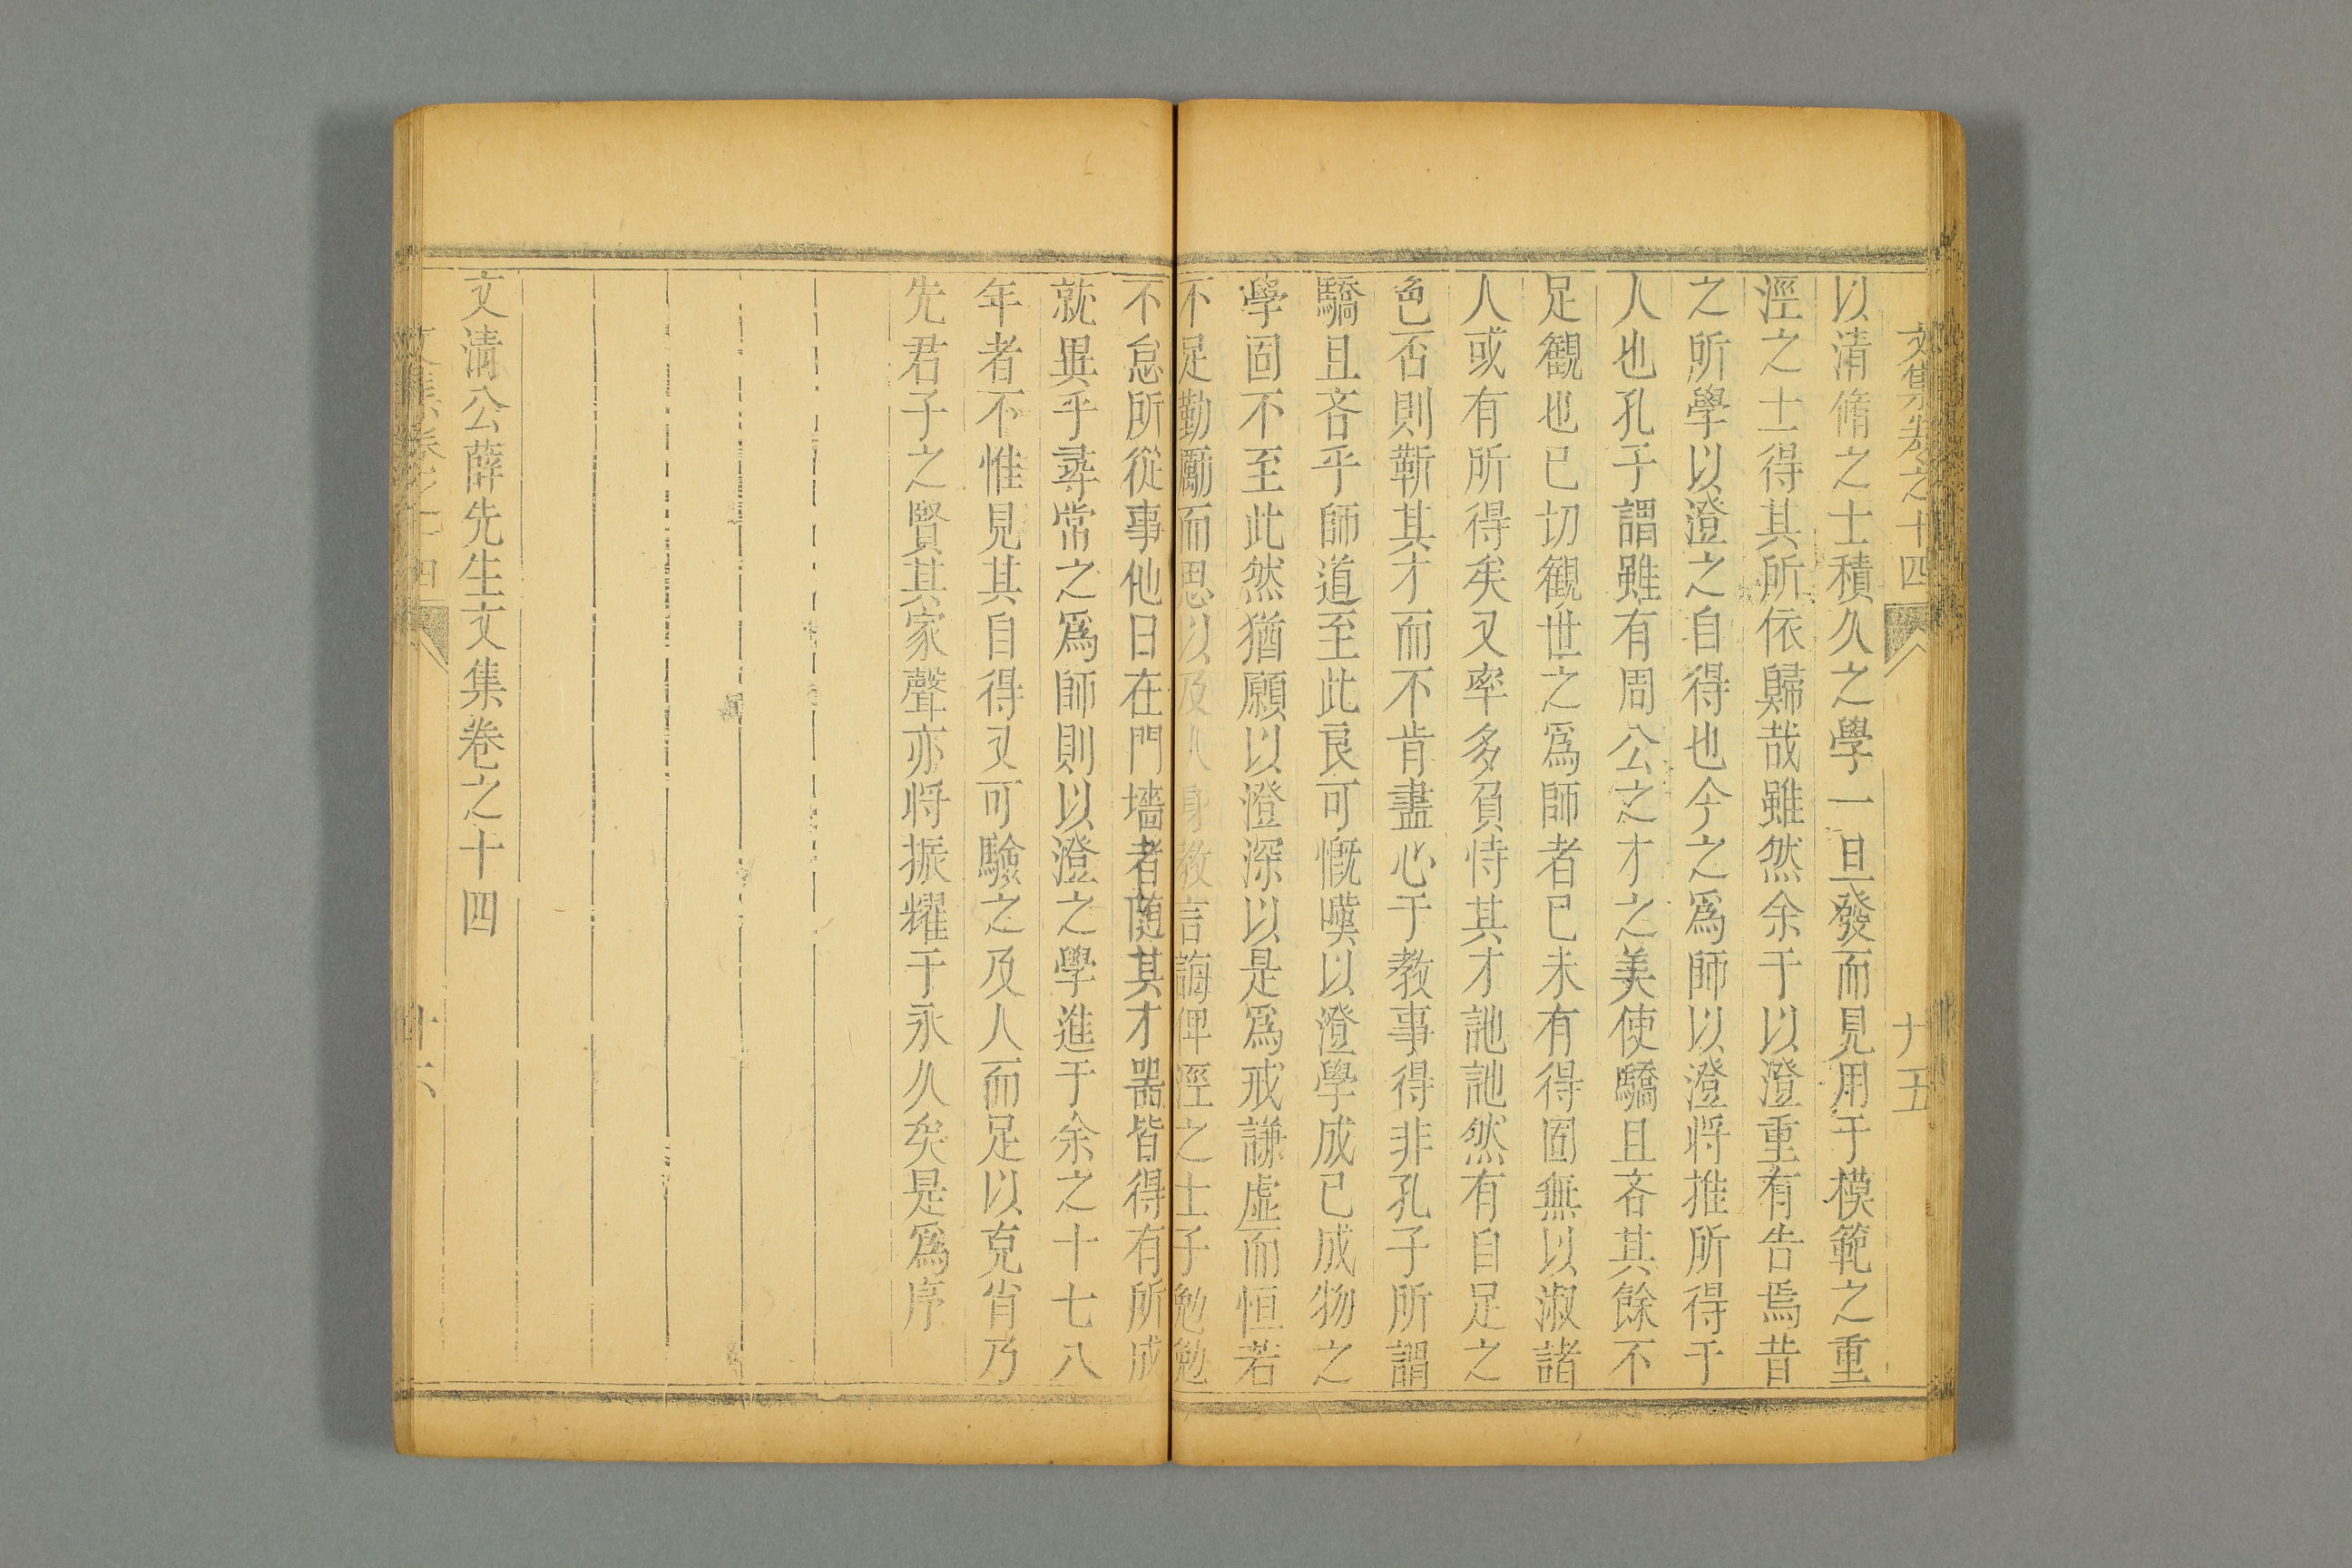 文集卷之十四
十五
以清脩之士積久之學一旦發而見用于模範之重
涇之士得其所依歸哉雖然余于以澄重有告焉昔
之所學以澄之自得也今之爲師以澄将推所得于
人也孔子謂雖有周公之才之美使驕且吝其餘不
足觀也已切觀世之爲師者已未有得固無以淑諸
人或有所得矣又率多負恃其才訑訑然有自足之
色否則靳其才而不肯盡心于教事得非孔子所謂
驕且吝乎師道至此良可慨嘆以澄學成已成物之
學固不至此然猶願以澄深以是爲戒謙虛而恒若
不足勤勵而思以及人身教言誨俾涇之士子勉勉
不怠所從事他日在門墻者随其才噐皆得有所成
就異乎尋常之爲師則以澄之學進于余之十七八
年者不惟見其自得又可驗之及人而足以克肖乃
先君子之賢其家聲亦将振耀于永久矣是爲序
文清公薛先生文集卷之十四
文集卷之十四
十六